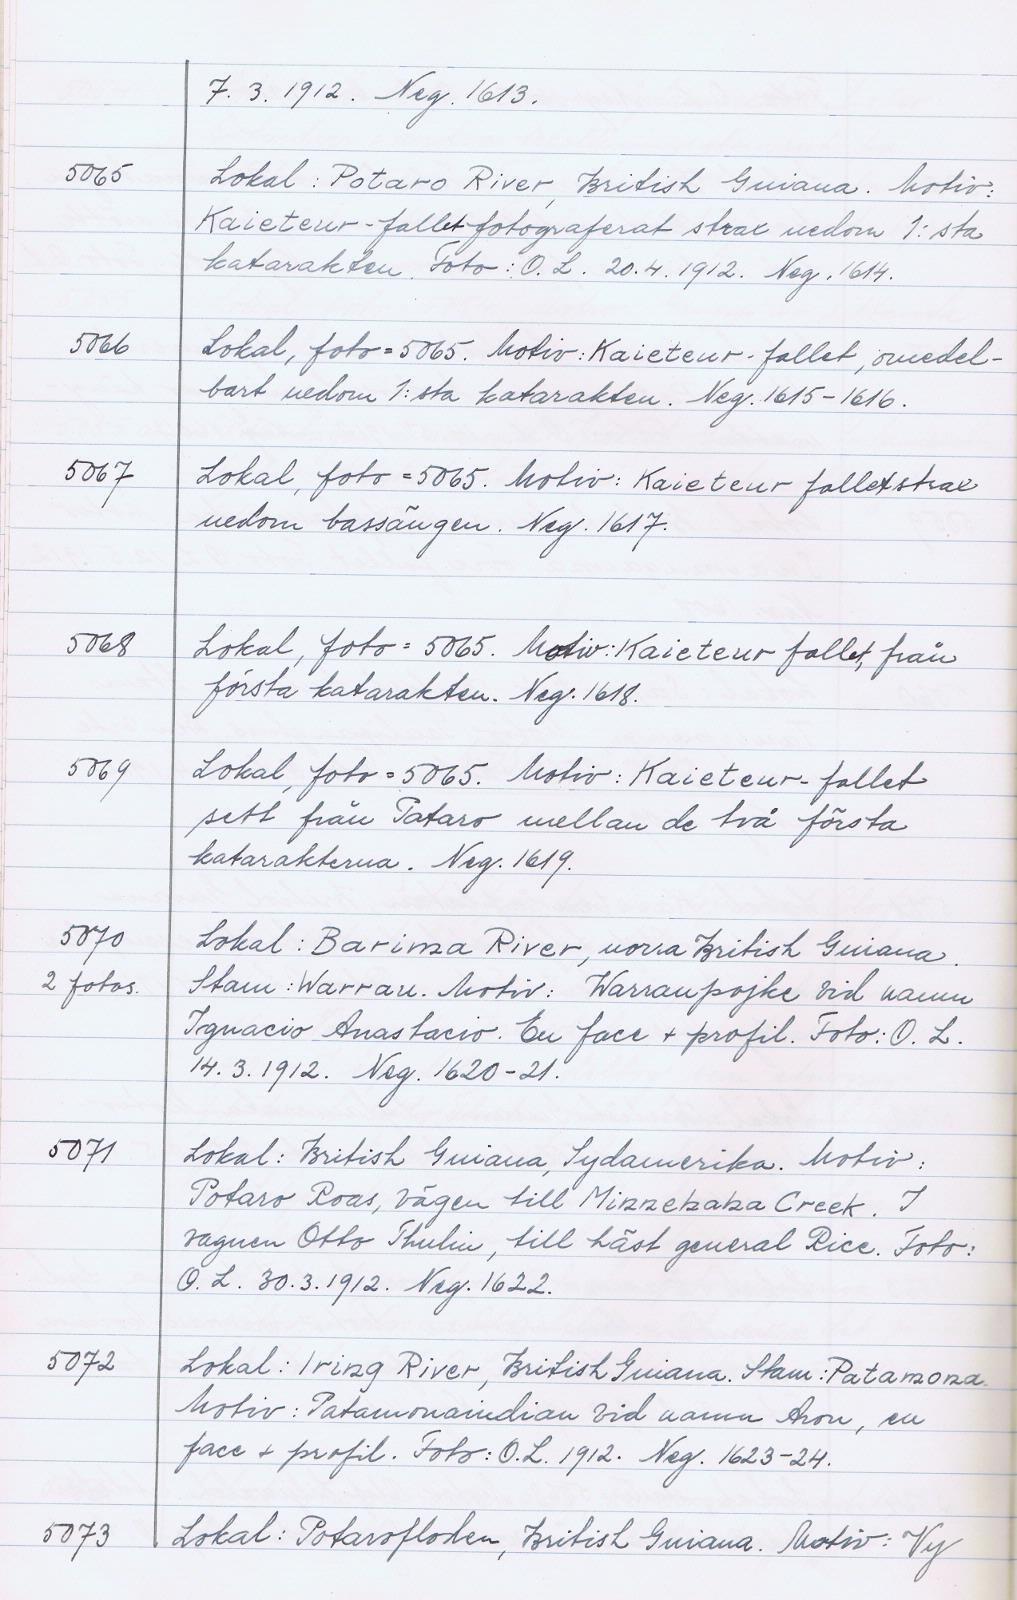 7. 3. 1912. Neg. 1613.
5065 Lokal: Potaro River, British Guiana. Motiv:
Kaieteur-fallet fotograferat strax nedom 1:sta
katarakten. Foto: O. L. 20.4.1912. Neg. 1614.
5066 Lokal, foto = 5065. Motiv: Kaieteur-fallet, omedel-
bart nedom 1:sta katarakten. Neg. 1615-1616.
5067 Lokal, foto = 5065. Motiv: Kaieteur fallet strax
nedom bassängen. Neg. 1617.
5068 Lokal, foto = 5065. Motiv: Kaieteur fallet, från
första katarakten. Neg. 1618.
5069 Lokal, foto = 5065. Motiv: Kaieteur-fallet
sett från Pataro mellan de två första
katarakterna. Neg. 1619.
5070 Lokal: Barima River, norra British Guiana.
2 fotos. Stam: Warrau. Motiv: Warraupojke vid namn
Ignacio Anastacio. En face + profil. Foto: O. L.
14. 3. 1912. Neg. 1620-21.
5071 Lokal: British Guiana, Sydamerika. Motiv:
Potaro Roas, vägen till Minnehaha Creek. I
vagnen Otto Thulin, till häst general Rice. Foto:
O. L. 30.3.1912. Neg. 1622.
5072 Lokal: Iring River, British Guiana. Stam: Patamona.
Motiv: Patamonaindian vid namn Aron, en
face + profil. Foto: O.L. 1912. Neg. 1623-24.
5073 Lokal: Potarofloden, British Guiana. Motiv: Vy